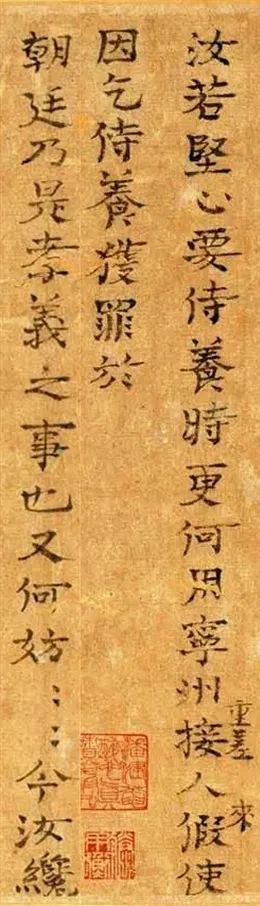 汝若堅心要侍養時更何用寧州接人假使
重差
來
因乞侍養獲罪於
朝廷乃是孝義之事也又何妨〻〻今汝纔